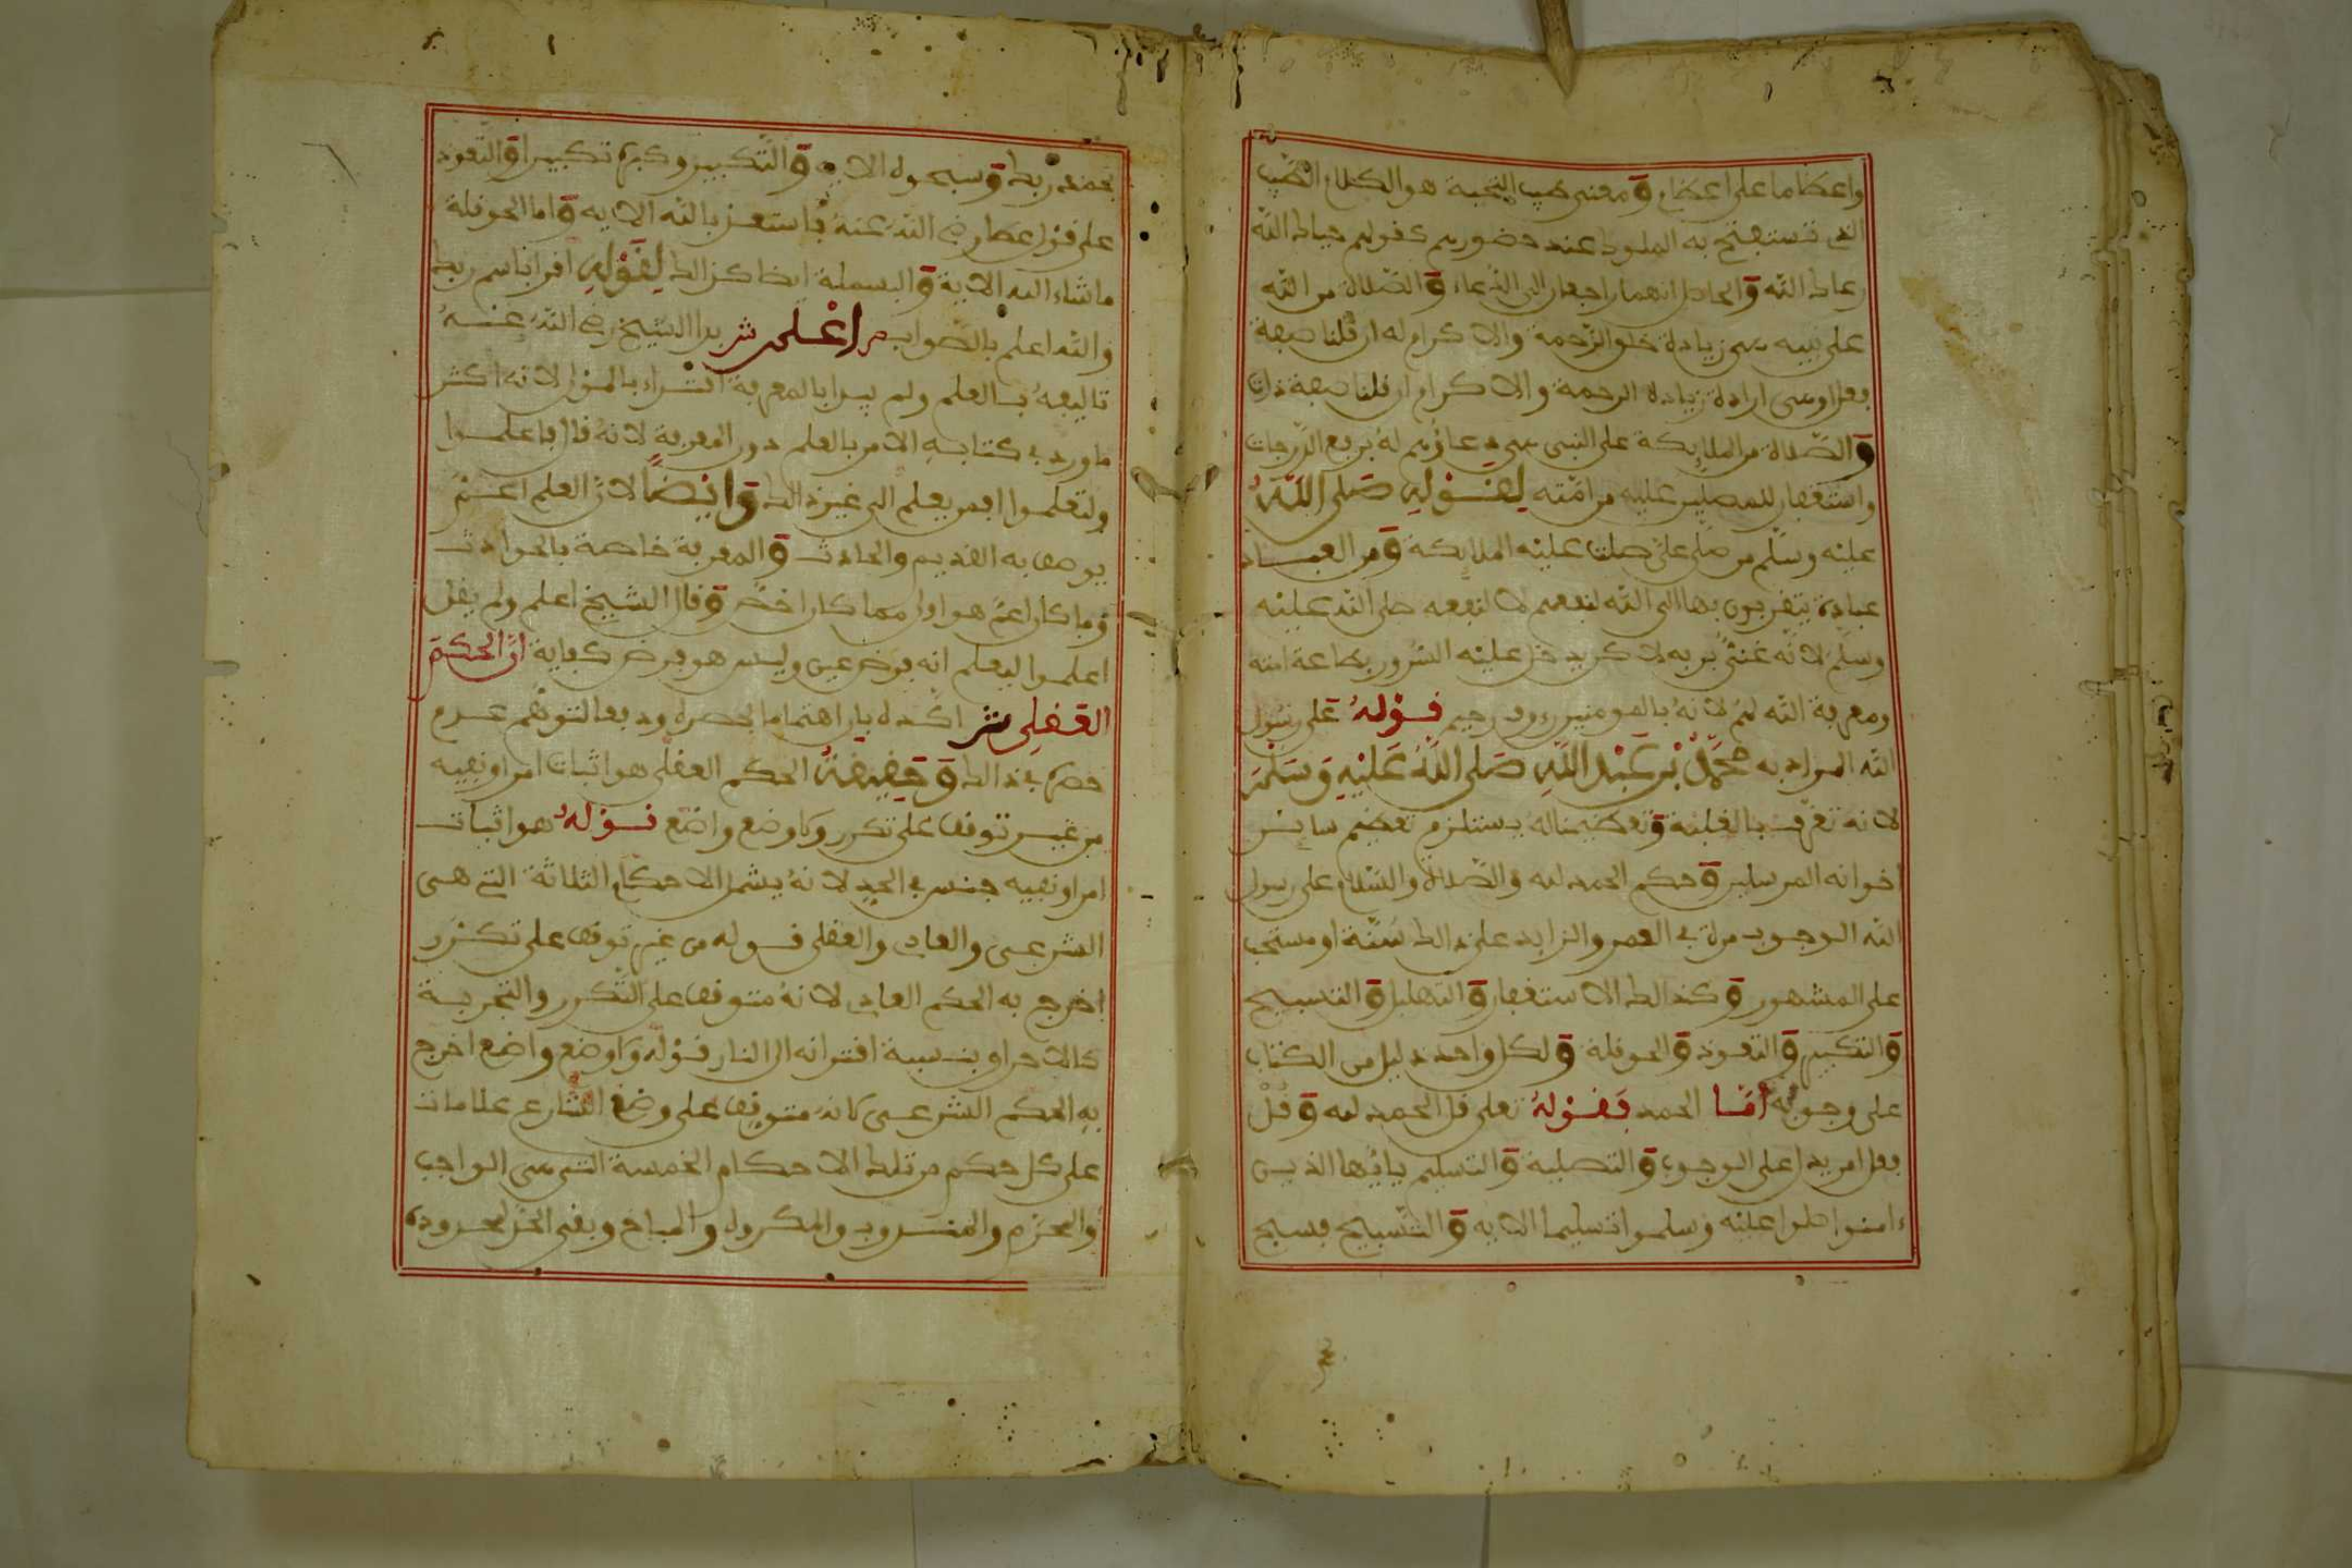 واعظاما على اعظام ومعنى طيب التحية هو الكلام الطيب
الذي تستفتح به الملوك عند حضورهم كقولهم حياك الله
رعاك الله والحاصل انهما راجعان الى الدعاء والصلاة من الله
على نبيه هي زيادة خلو الرحمة والاكرام له ان قلنا صفة
فعل او هي ارادة زيادة الرحمة والاكرام ان قلنا صفة ذات
والصلاة من الملايكة على النبي هي دعاؤهم له برفع الدرجات
واستغفار للمصلين عليه من امته لقوله صلى الله
عليه وسلم من صلى علي صلت عليه الملايكة ومن العباد
عبادة يتقربون بها الى الله لنفعهم لا لنفعه صلى الله عليه
وسلم لانه غني بربه لاكن يدخل عليه السرور بطاعة امته
ومعرفة الله لهم لانه بالمومنين رءوف رحيم قوله على رسول
الله المراد به محمد بن عبد الله صلى الله عليه وسلم
لانه تعرف بالغلبة وتعظيمنا له يستلزم تعظيم ساير
اخوانه المرسلين وحكم الحمد لله والصلاة والسلام على رسول
الله الوجوب مرة في العمر والزايد على ذالك سنة او مستحب
على المشهور وكذالك الاستغفار والتهليل والتسبيح
والتكبير والتعوذ والحوقلة ولكل واحد دليل من الكتاب
على وجوبه اما الحمد فقوله تعلى قل الحمد لله وقل
فعل امر يدل على الوجوب والتصلية والتسليم يايها الذين
ءامنوا صلوا عليه وسلموا تسليما الاية والتسبيح فسبح
بحمد ربك وسبحوه الاية والتكبير وكبره تكبيرا والتعوذ
على قول عطا رضي الله عنه فاستعذ بالله الاية واما الحوقلة
ما شاء الله الاية والبسملة ايضا كذالك لقوله اقرا باسم ربك
والله اعلم بالصواب ص اعلم ش بدا الشيخ رضي الله عنه
تاليفه بالعلم ولم يبدا بالمعرفة اقتداء بالمولى لانه اكثر
ما ورد في كتابه الامر بالعلم دون المعرفة لانه قال فاعلموا
ولتعلموا افمن يعلم الى غير ذالك وايضا لان العلم اعم
يوصف به القديم والحادث والمعرفة خاصة بالحوادث
وما كان اعم هو اولى مما كان اخص وقال الشيخ اعلم ولم يقل
اعلموا ليعلم انه فرض عين وليس هو فرض كفاية ان الحكم
العقلي ش اكده بان اهتماما بحصره ودفعا لتوهم عدم
حصره في ذالك وحقيقة الحكم العقلي هو اثبات امر او نفيه
من غير توقف على تكرر ولا وضع واضع قوله هو اثبات
امر او نفيه جنس في الحد لانه يشمل الاحكام الثلاثة التي هي
الشرعي والعادي والعقلي قوله من غير توقف على تكرر
اخرج به الحكم العادي لانه متوقف على التكرر والتجربة
كالاحراق بنسبة اقترانه الى النار قوله ولا وضع واضع اخرج
به الحكم الشرعي لانه متوقف على وضع الشارع علامات
على كل حكم من تلك الاحكام الخمسة التي هي الواجب
والمحرم والمندوب والمكروه والمباح وبقي الحد لمحدوده